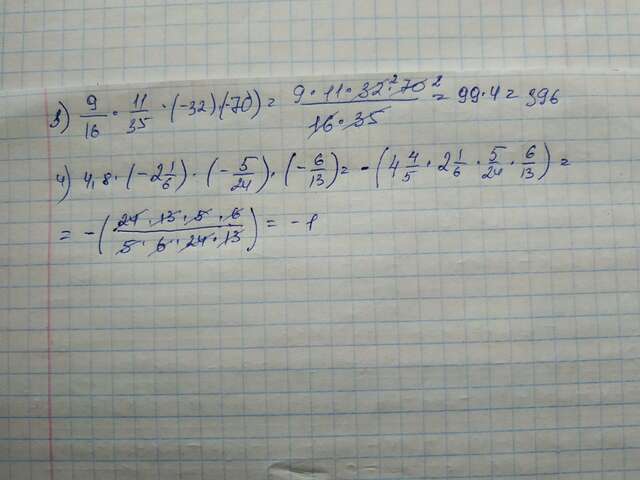 3) 9/16 · 11/35 · (-32)(-70) = 9·11·32²·70²/16·35 = 99·4 = 396
4) 4,8 · (-2 1/6) · (-5/24) · (-6/13) = -(4 4/5 · 2 1/6 · 5/24 · 6/13) =
= -(24·13·5·6/5·6·24·13) = -1